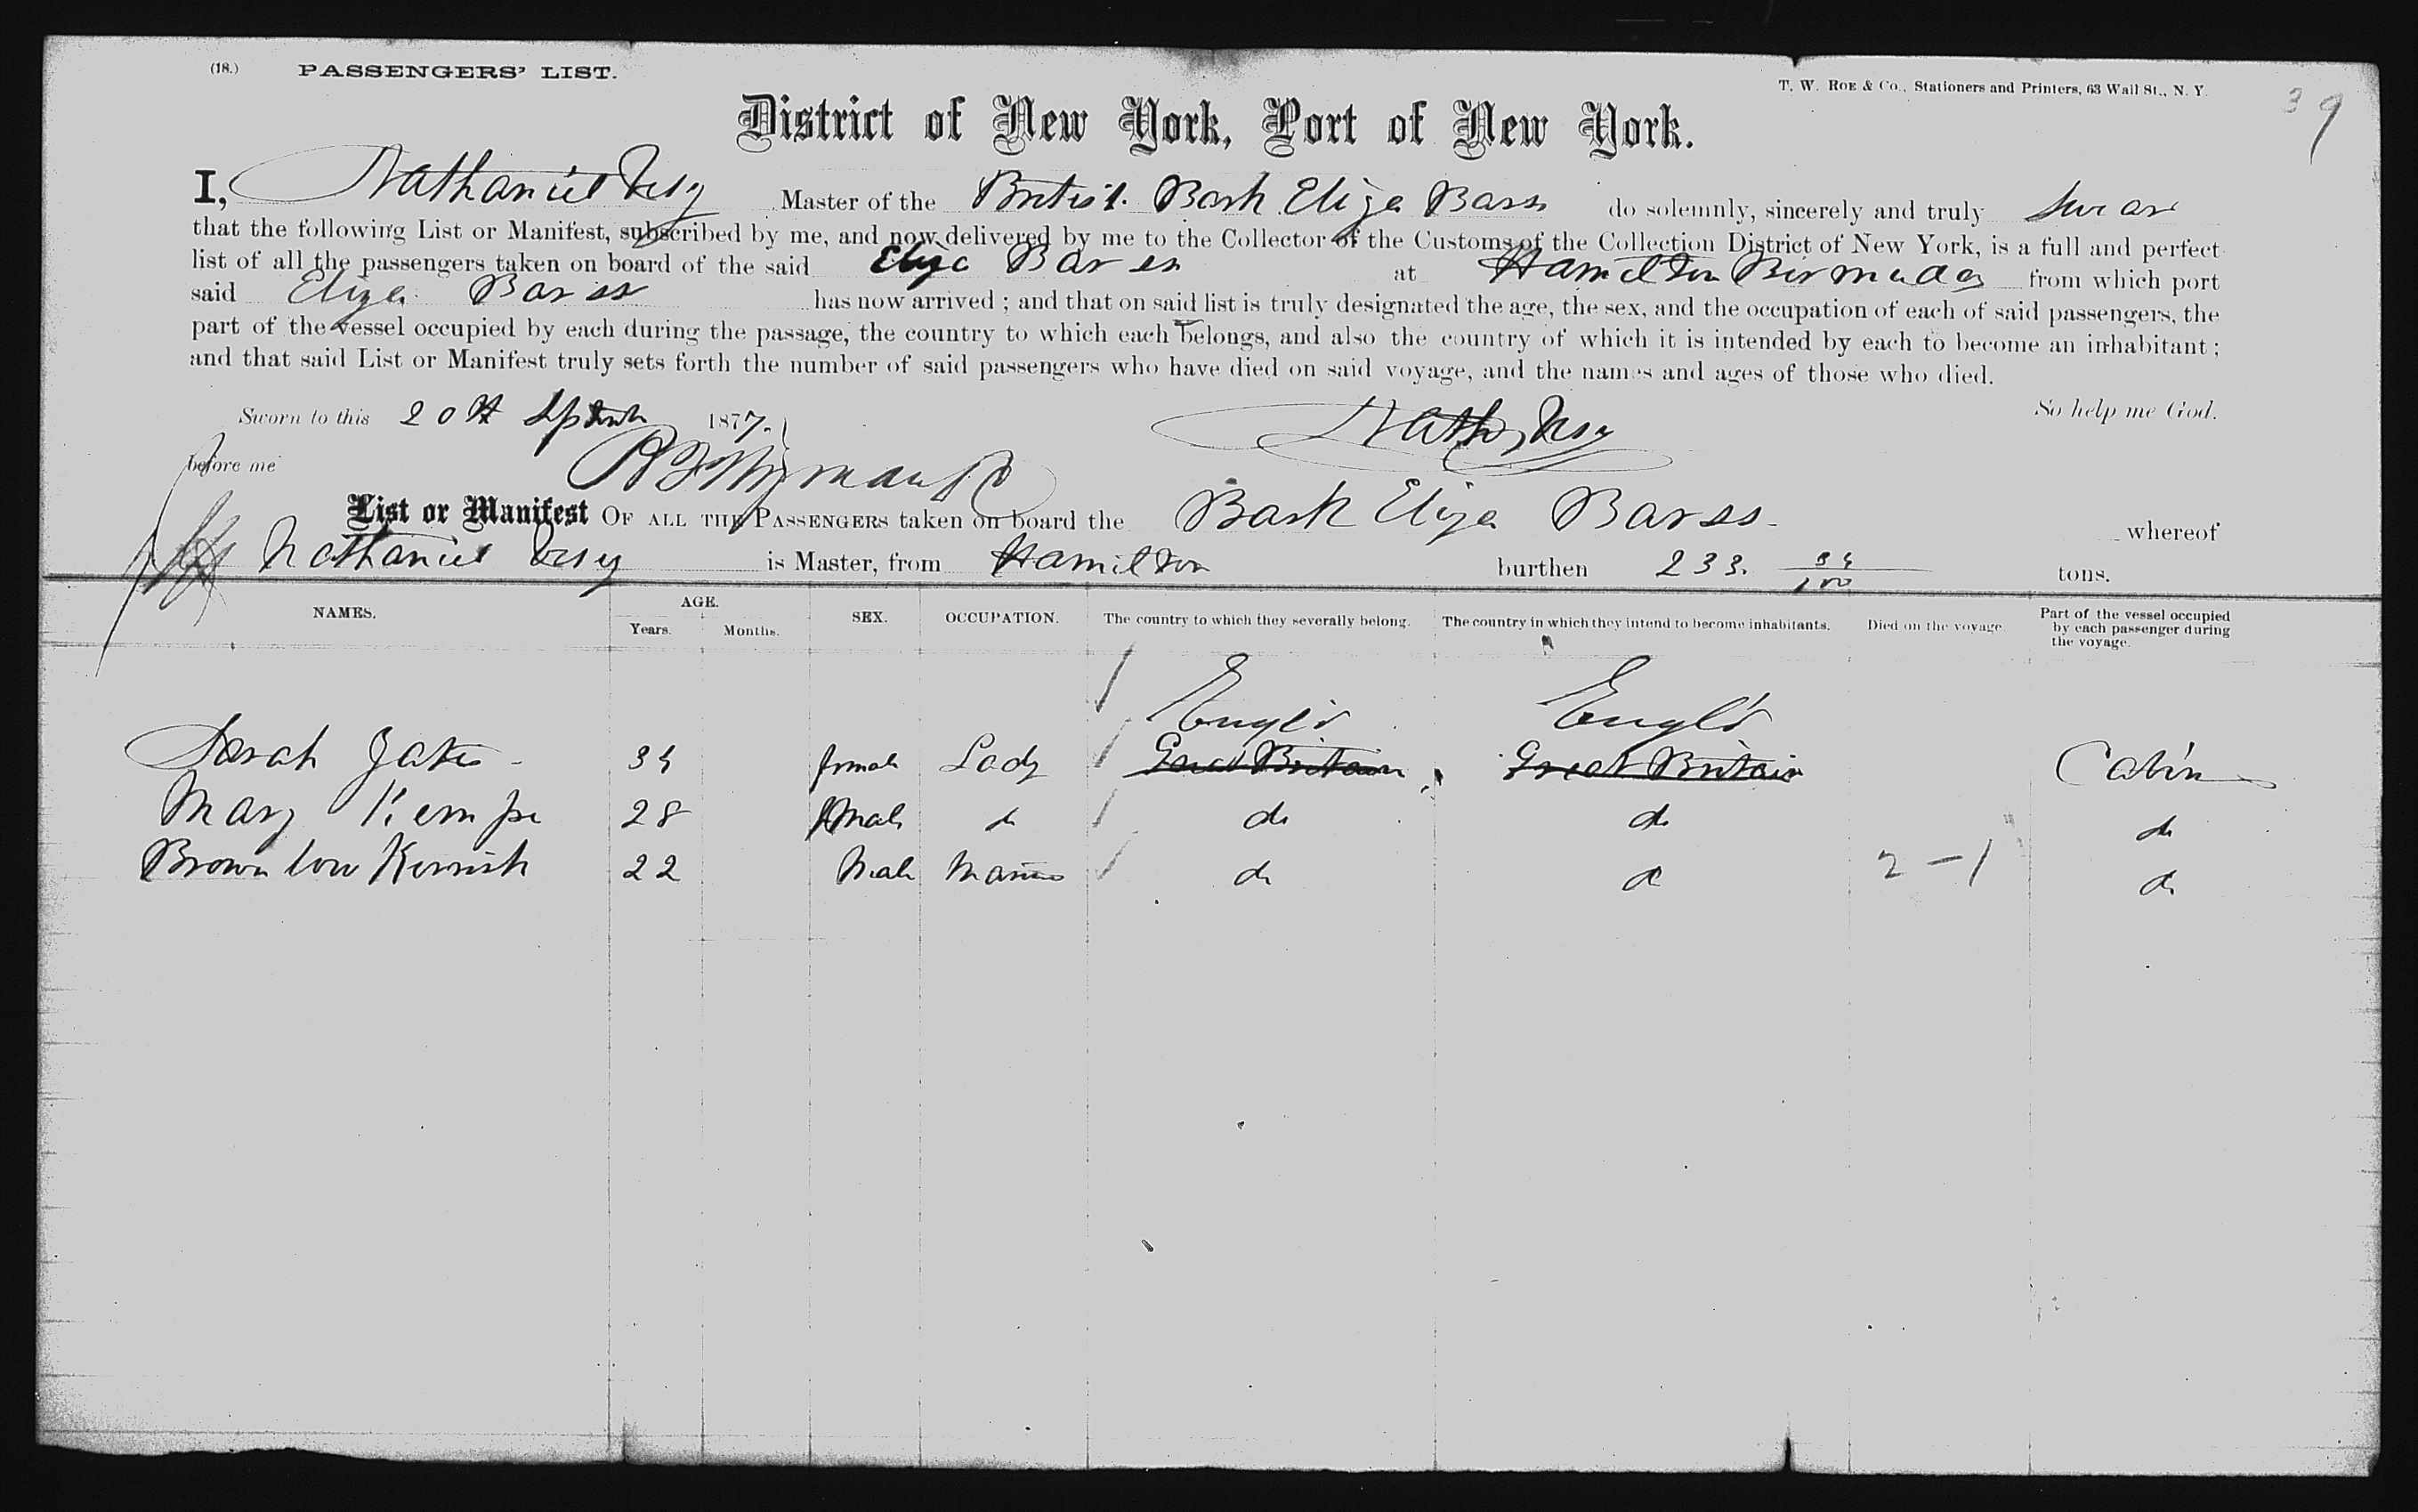 (18.) PASSENGERS' LIST.
T. W. ROE & Co., Stationers and Printers, 63 Wall St., N. Y.
39
District of New York, Port of New York.
I, Nathaniel Vesey Master of the British Bark Eliza Barss do solemnly, sincerely and truly swear
that the following List or Manifest, subscribed by me, and now delivered by me to the Collector of the Customs of the Collection District of New York, is a full and perfect
list of all the passengers taken on board of the said Eliza Barss at Hamilton Bermuda from which port
said Eliza Barss has now arrived; and that on said list is truly designated the age, the sex, and the occupation of each of said passengers, the
part of the vessel occupied by each during the passage, the country to which each belongs, and also the country of which it is intended by each to become an inhabitant;
and that said List or Manifest truly sets forth the number of said passengers who have died on said voyage, and the names and ages of those who died.
So help me God.
Sworn to this 20th 1877.
before me
List or Manifest OF ALL THE PASSENGERS taken on board the Bark Eliza Barss whereof
Nathaniel Vesey is Master, from Hamilton burthen 233. 34/100 tons.
NAMES. AGE. Years. Months. SEX. OCCUPATION. The country to which they severally belong. The country in which they intend to become inhabitants. Died on the voyage. Part of the vessel occupied by each passenger during the voyage.
Engl'd Engl'd
Sarah 34 female Lady Great Britain Great Britain Cabin
Mary Kempe 28 female do do do do
Brownlow 22 Male do do 2-1 do